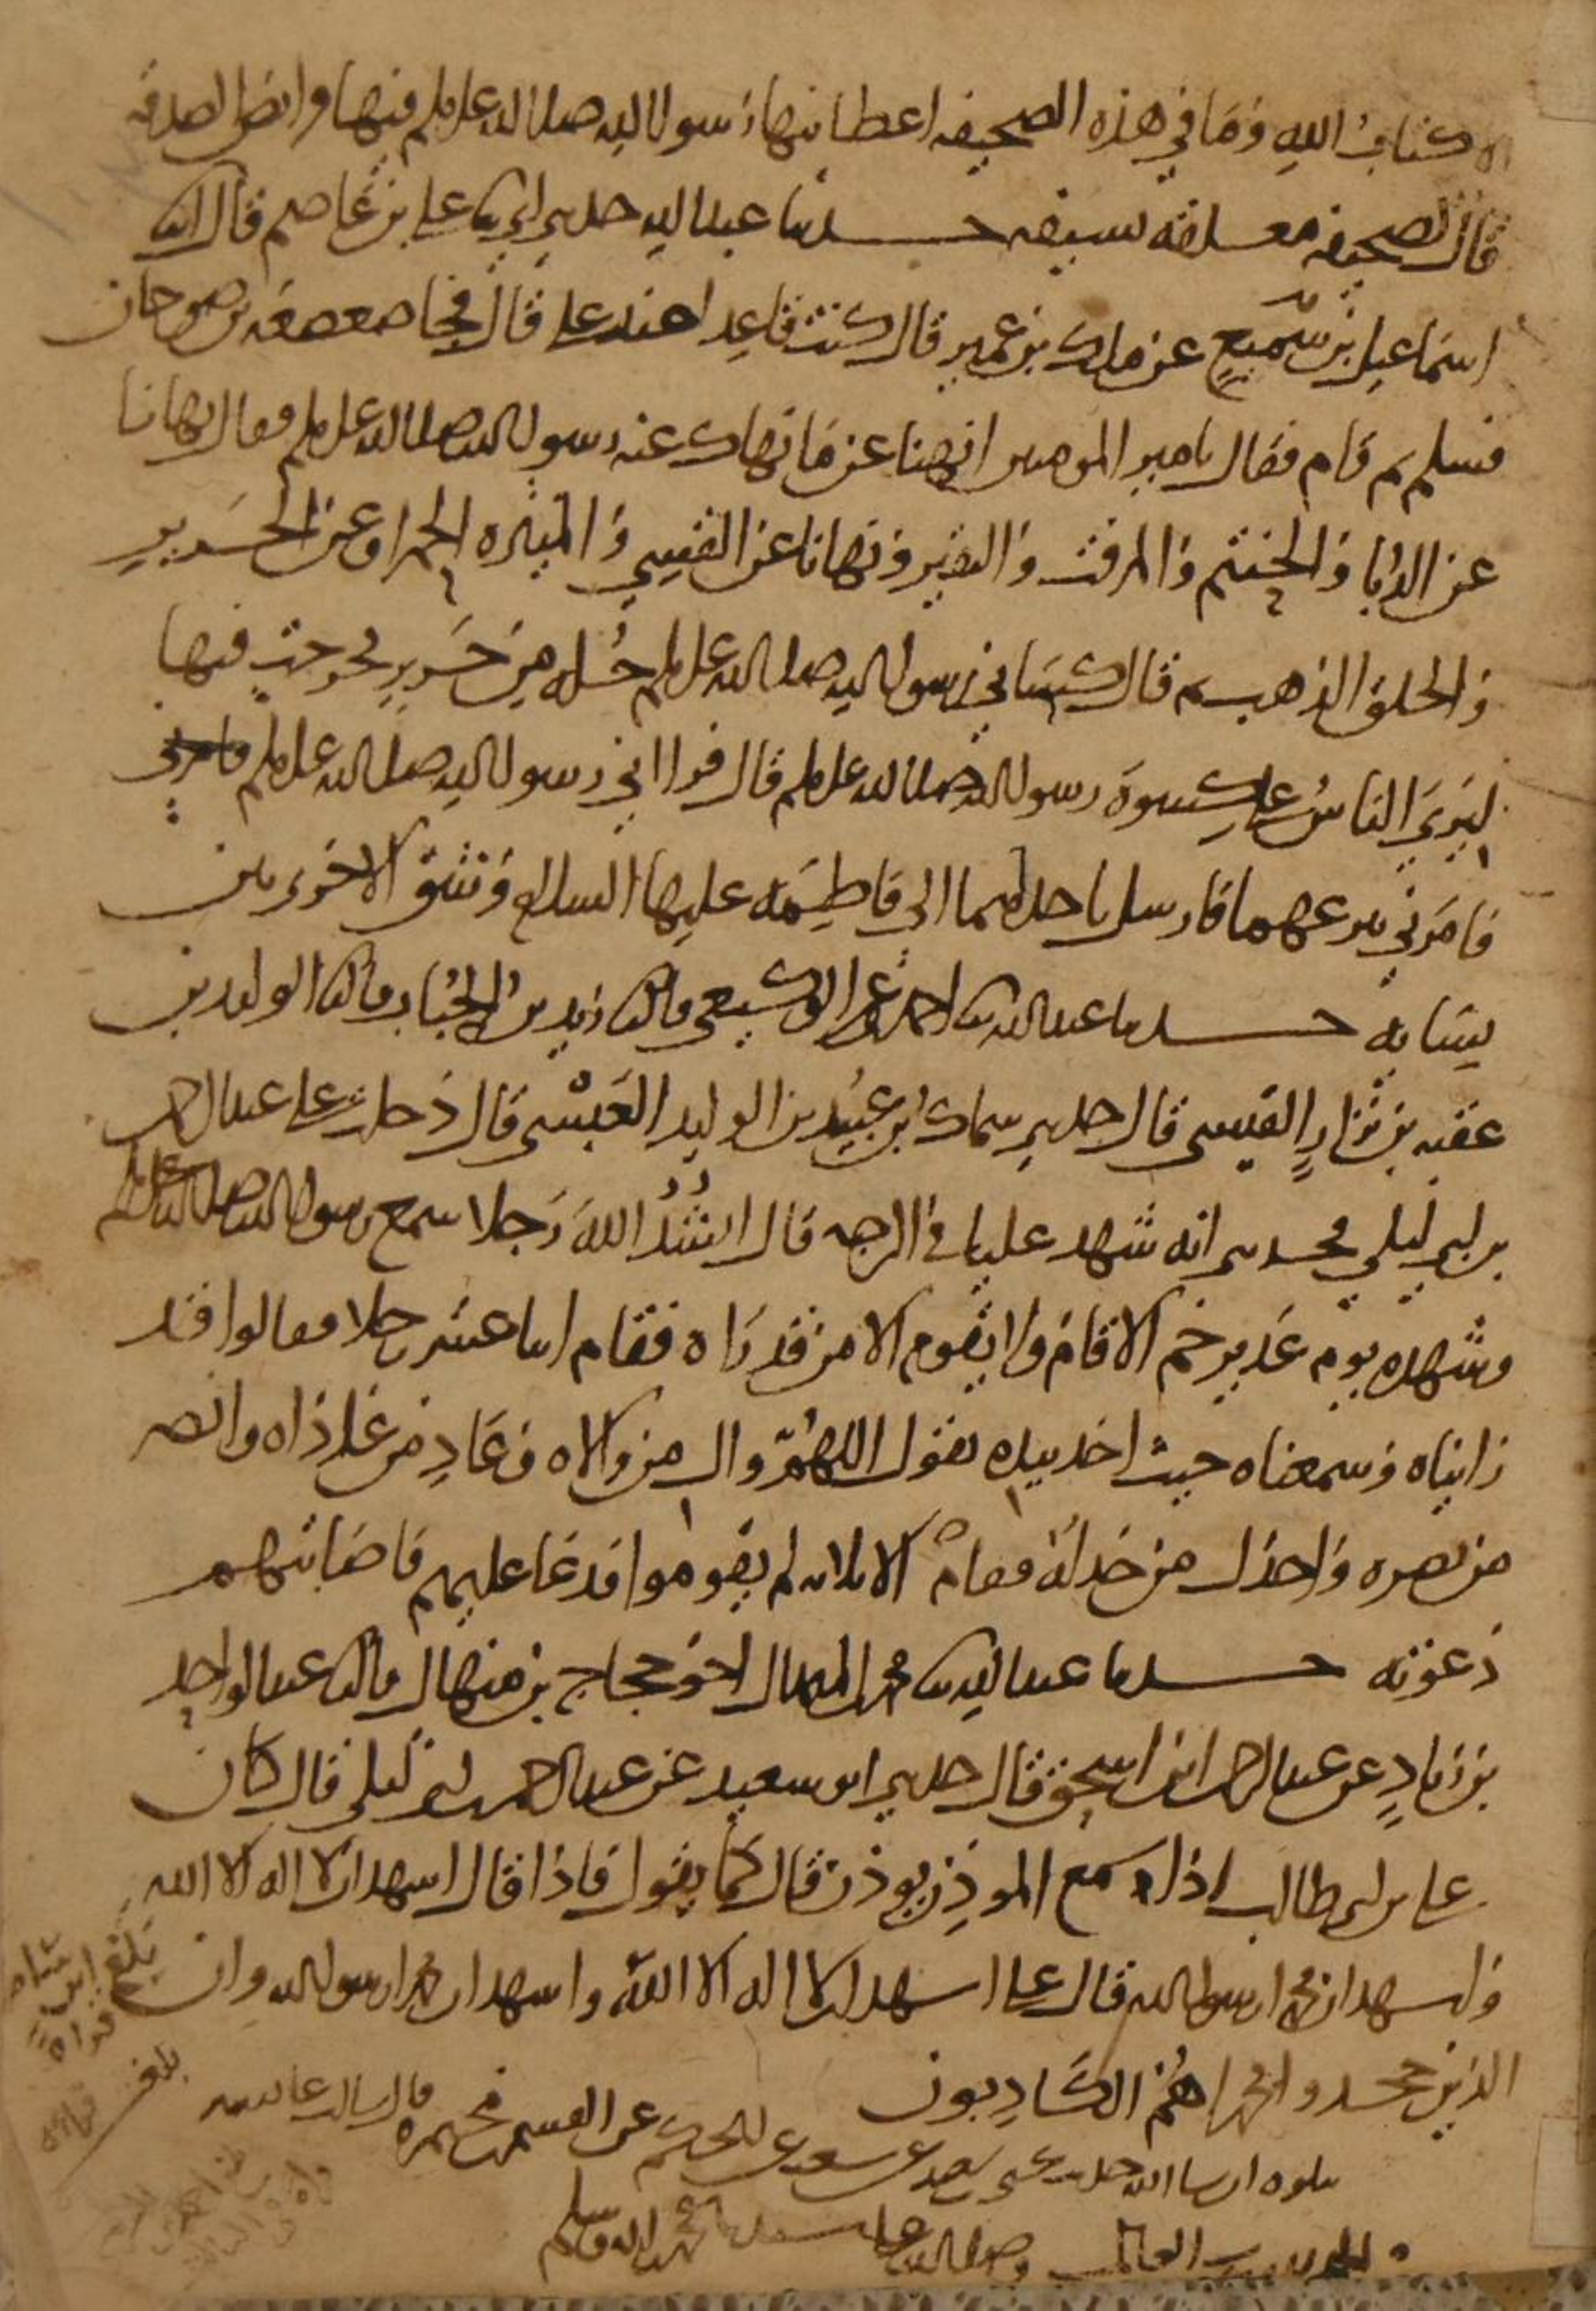 الا كتاب الله وما في هذه الصحيفه اعطانيها رسول الله صلى الله عليه وسلم فيها فرائض الصدقه
قال لصحيفه معلقة بسيفه حدثنا عبد الله حدثني ابي ثنا علي بن عاصم قال انا
اسماعيل بن سميع عن ملك بن عمير قال كنت قاعدا عند علي قال فجا صعصعه بن صوحان
فسلم ثم قام فقال يا مير المومنين انهنا عن ما نهاك عنه رسول الله صلى الله عليه وسلم فقال نهانا
عن الدبا والحنتم والمزفت والنقير ونهانا عن القسي والميثره الحمرا وعن الحرير
والحلق الذهب ثم قال كساني رسول الله صلى الله عليه وسلم حله من حرير فخرجت فيها
ليرى الناس علي كسوة رسول الله صلى الله عليه وسلم قال فراني رسول الله صلى الله عليه وسلم
فامرني بنزعهما فارسل باحداهما الى فاطمه عليها السلام وشق الاخرى بين
نسايه حدثنا عبد الله ثنا احمد بن عمر الوكيعي ثنا زيد بن الحباب ثنا الوليد بن
عقبه بن نزار القيسي قال حدثني سماك بن عبيد بن الوليد العبسي قال دخلت على عبد الرحمن
بن ابي ليلى فحدثني انه شهد عليا في الرحبه قال انشد الله رجلا سمع رسول الله صلى الله عليه وسلم
وشهده يوم غدير خم الا قام ولا يقوم الا من قد راه فقام اثنا عشر رجلا فقالوا قد
رايناه وسمعناه حيث اخذ بيده يقول اللهم وال من والاه وعاد من عاداه وانصر
من نصره واخذل من خذله فقام الا ثلاثه لم يقوموا فدعا عليهم فاصابتهم
دعوته حدثنا عبد الله ثنا محمد بن المنهال اخو حجاج بن منهال ثنا عبد الواحد
بن زياد عن عبد الرحمن ابن اسحق قال حدثني ابو سعيد عن عبد الرحمن بن ابي ليلى قال كان
علي بن ابي طالب اذا سمع الموذن يوذن قال كما يقول فاذا قال اشهد ان لا اله الا الله
واشهد ان محمدا رسول الله قال علي اشهد ان لا اله الا الله واشهد ان محمدا رسول الله وان
الذين جحدوا محمدا هم الكاذبون
يتلوه ان شا الله حدثنا يحيى بن سعيد عن شعبه عن الحكم عن القسم بن مخيمره قال سالت عايشه
الحمد لله رب العالمين وصلى الله على سيدنا محمد واله وسلم
بلغ
بلغ